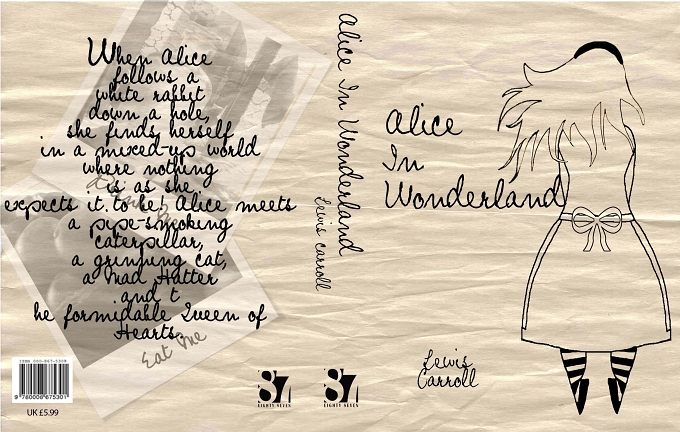 When Alice
follows a
white rabbit
down a hole,
she finds herself
in a mixed-up world
where nothing
is as she
expects it to be! Alice meets
a pipe-smoking
caterpillar,
a grinning cat,
a Mad Hatter
and t
he formidable Queen of
Hearts.
Eat Me
ISBN 000-867-5309
9 780008 675301
UK £5.99
87
EIGHTY SEVEN
Alice In Wonderland
Lewis Carroll
87
EIGHTY SEVEN
Alice
In
Wonderland
Lewis
Carroll